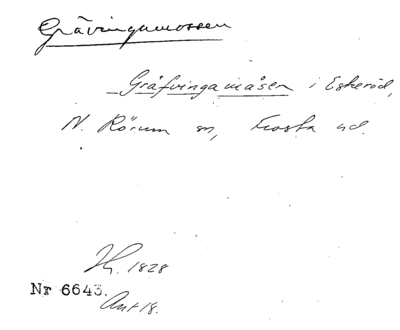 Grävingamossen
Gräfvingamåsen i Eskeröd,
N. Rörum sn, Frosta hd.
H. 1828
Nr 6643.
Ant 18.